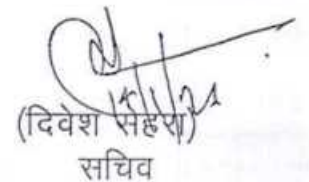 (दिवेश सेहरा)
सचिव